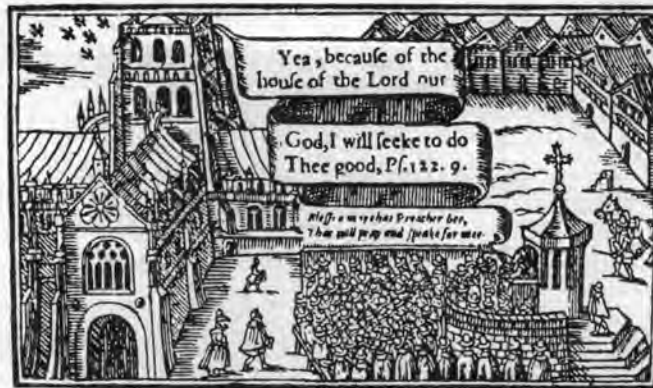 Yea, becauſe of the
houſe of the Lord our
God, I will ſeeke to do
Thee good, Pſ. 122. 9.
Preacher bee,
that will pray and ſpeake for mee.